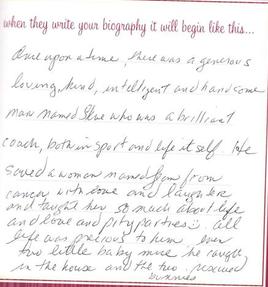 when they write your biography it will begin like this...
Once upon a time, there was a generous
loving, kind, intelligent and handsome
man named Steve who was a brilliant
coach, both in sport and life itself. He
saved a woman named from
cancer with love and laughter
and taught her so much about life
and love and pity parties :). All
life was precious to him even
two little baby mice he caught
in the house and the two rescued
bunnies